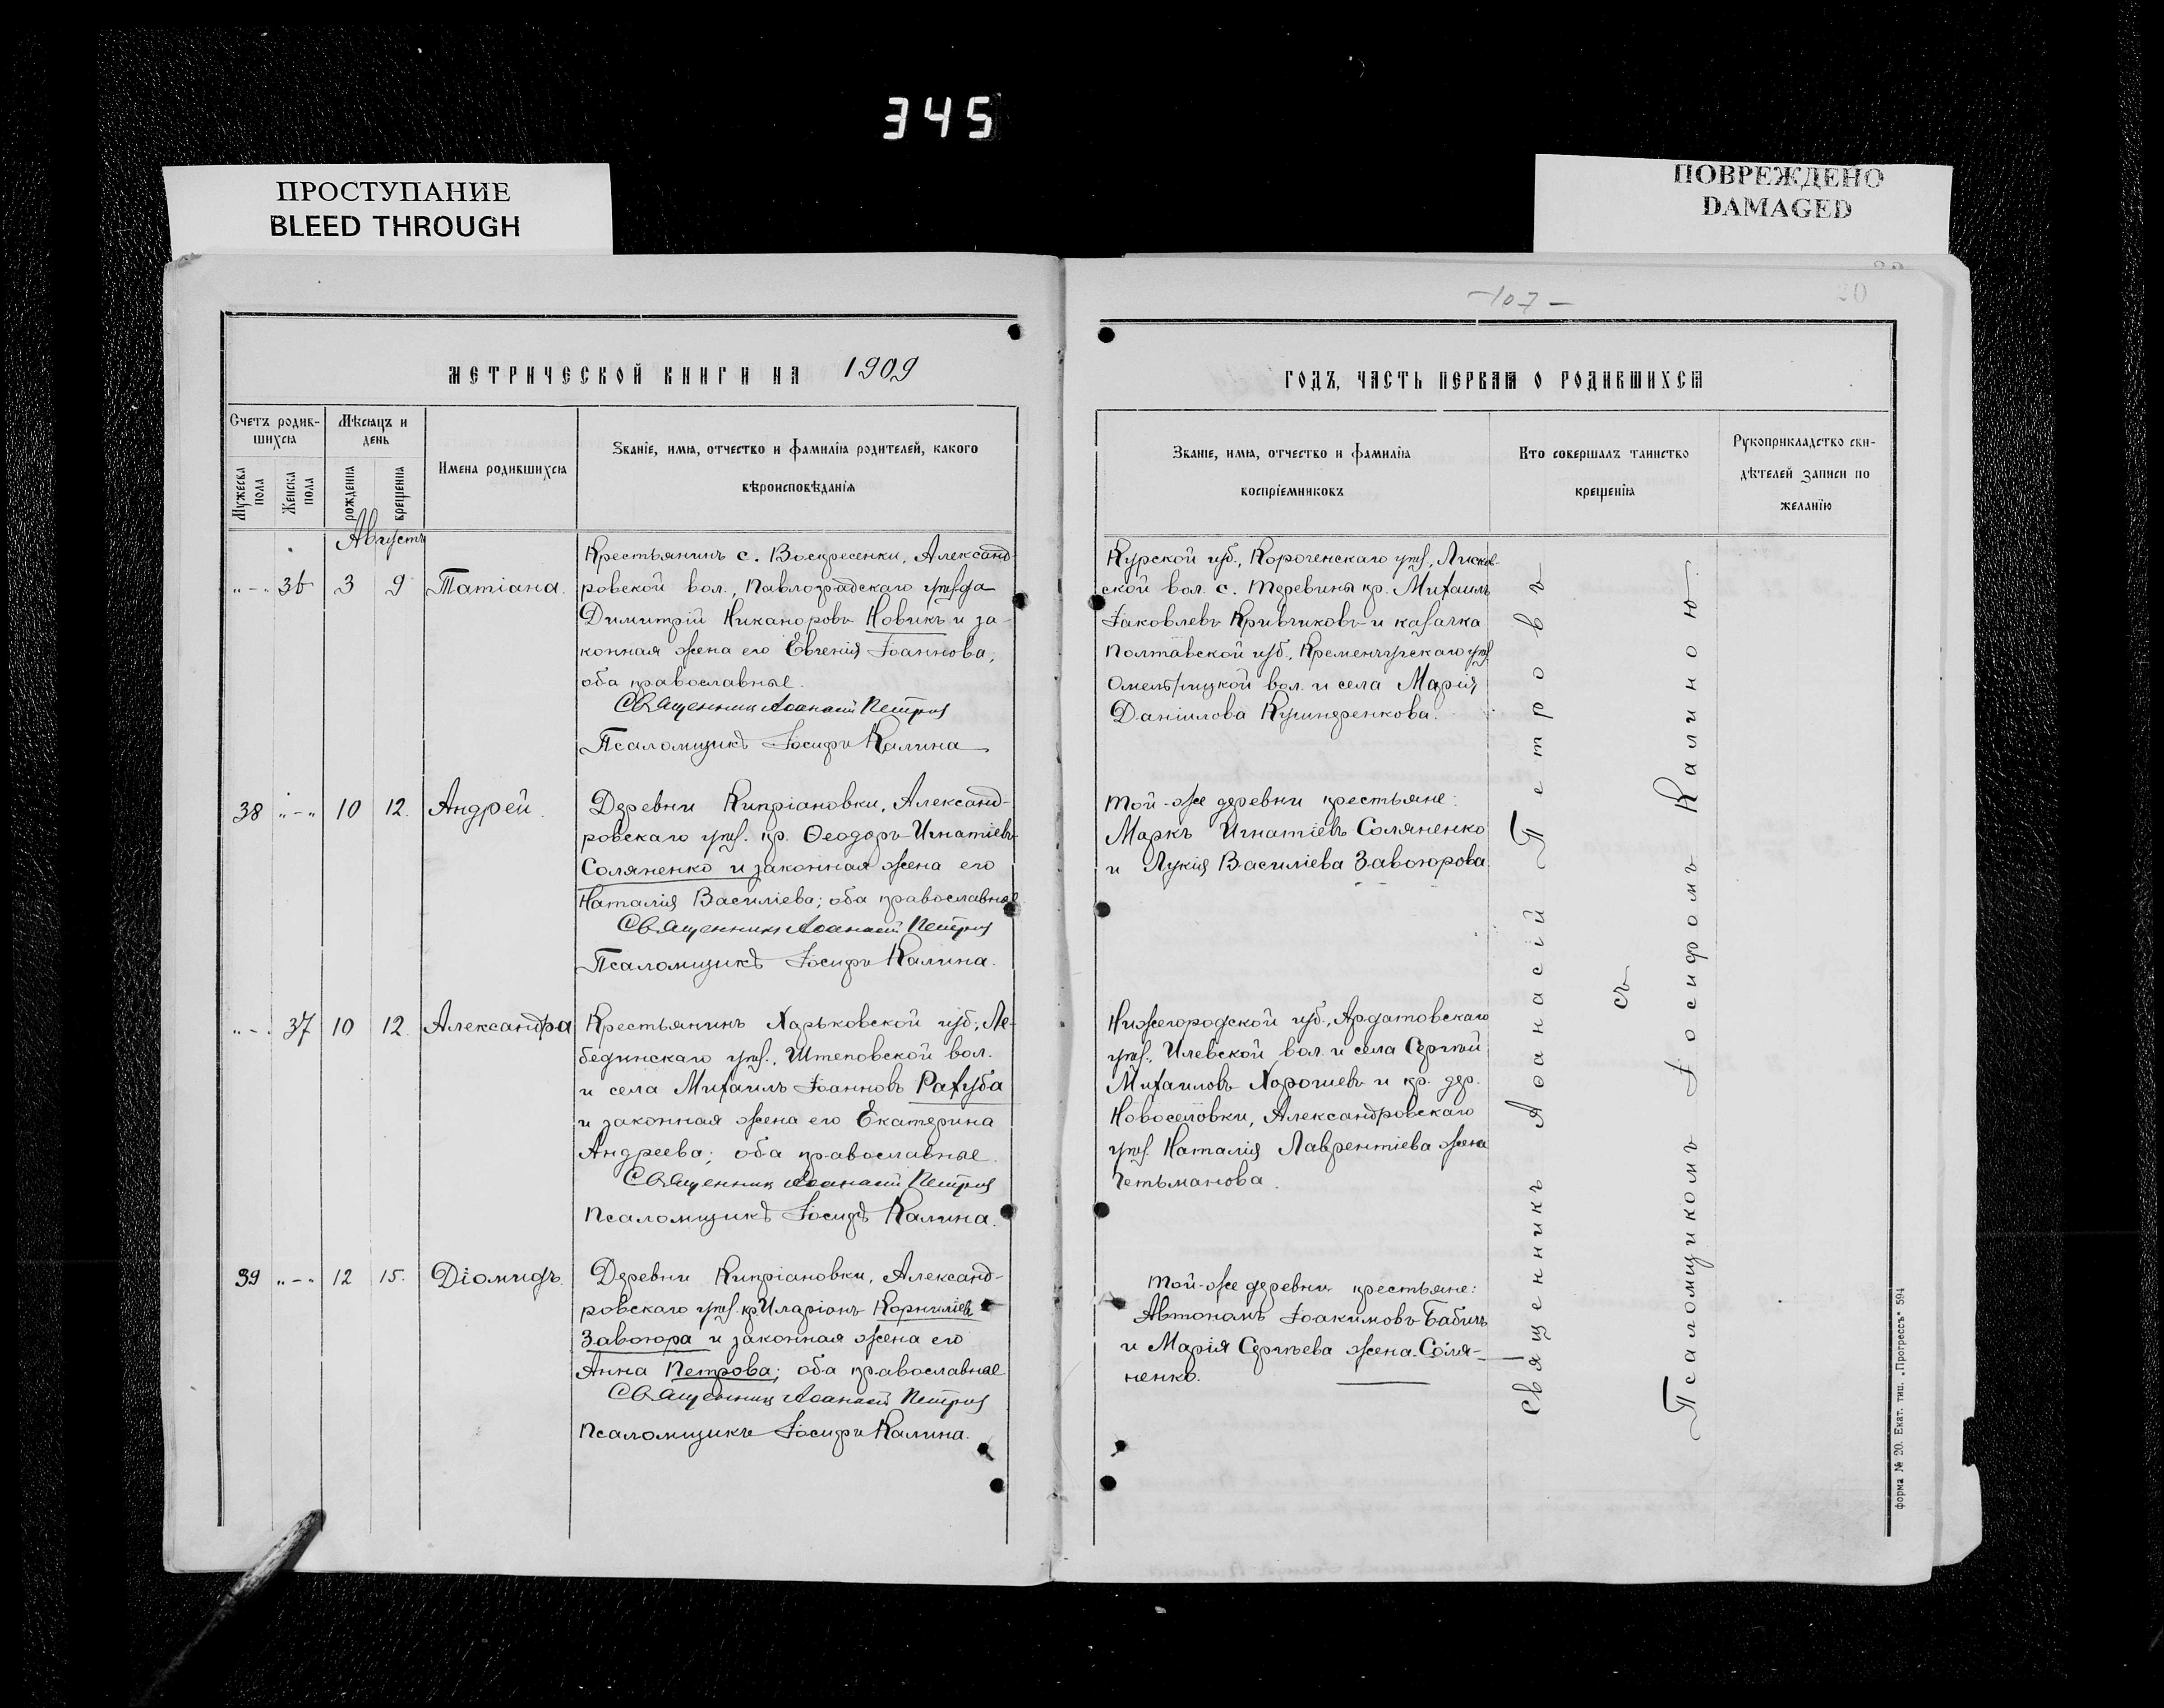 345
ПРОСТУПАНИЕ
BLEED THROUGH
ПОВРЕЖДЕНО
DAMAGED
МЕТРИЧЕСКОЙ КНИГИ НА 1909
Счетъ родив-
шихся
Мѣсяцъ и
день
Мужеска
пола
Женска
пола
рожденія
крещенія
Имена родившихся
Званіе, имя, отчество и фамилія родителей, какого
вѣроисповѣданія
Августъ
"-" 36 3 9 Татіана.
Крестьянинъ с. Воскресенки, Александ-
ровской вол., Павлоградскаго уѣзда
Димитрій Никаноровъ Новикъ и за-
конная жена его Евгенія Іоаннова;
оба православные.
Священникъ Аѳанасій Петровъ
Псаломщикъ Іосифъ Калина
38 "-" 10 12. Андрей.
Деревни Кипріановки, Александ-
ровскаго уѣз. кр. Ѳеодоръ Игнатіевъ
Соляненко и законная жена его
Наталія Василіева; оба православные
Священникъ Аѳанасій Петровъ
Псаломщикъ Іосифъ Калина.
"-" 37 10 12. Александра
Крестьянинъ Харьковской губ., Ле-
бединскаго уѣз., Штеповской вол.
и села Михаилъ Іоанновъ Рахуба
и законная жена его Екатерина
Андреева; оба православные.
Священникъ Аѳанасій Петровъ
Псаломщикъ Іосифъ Калина.
39 "-" 12 15. Діомидъ.
Деревни Кипріановки, Александ-
ровскаго уѣз. кр. Иларіонъ Корниліевъ
Завгора и законная жена его
Анна Петрова; оба православные
Священникъ Аѳанасій Петровъ
Псаломщикъ Іосифъ Калина.
-107-
20
ГОДЪ, ЧАСТЬ ПЕРВАЯ О РОДИВШИХСЯ
Званіе, имя, отчество и фамилія
воспріемниковъ
Кто совершалъ таинство
крещенія
Рукоприкладство сви-
дѣтелей записи по
желанію
Курской губ., Корочанскаго уѣз.,
ской вол. с. Теревины кр. Михаилъ
Іаковлевъ Кривчиковъ и казачка
Полтавской губ., Кременчугскаго уѣз.
Омельницкой вол. и села Марія
Даніилова
Той-же деревни крестьяне:
Маркъ Игнатіевъ Соляненко
и Лукія Василіева Завгорова.
Нижегородской губ., Ардатовскаго
уѣз., Илевской вол. и села Сергѣй
Михаиловъ Хорошевъ и кр. дер.
Новоселовки, Александровскаго
уѣз. Наталія Лаврентіева жена
Гетьманова.
Той-же деревни крестьяне:
Автономъ Іоакимовъ Бабичъ
и Марія Сергѣева жена Соля-
ненко.
Священникъ Аѳанасій Петровъ
съ
Псаломщикомъ Іосифомъ Калиною.
форма № 20. Екат. тип. „Прогрессъ" 594